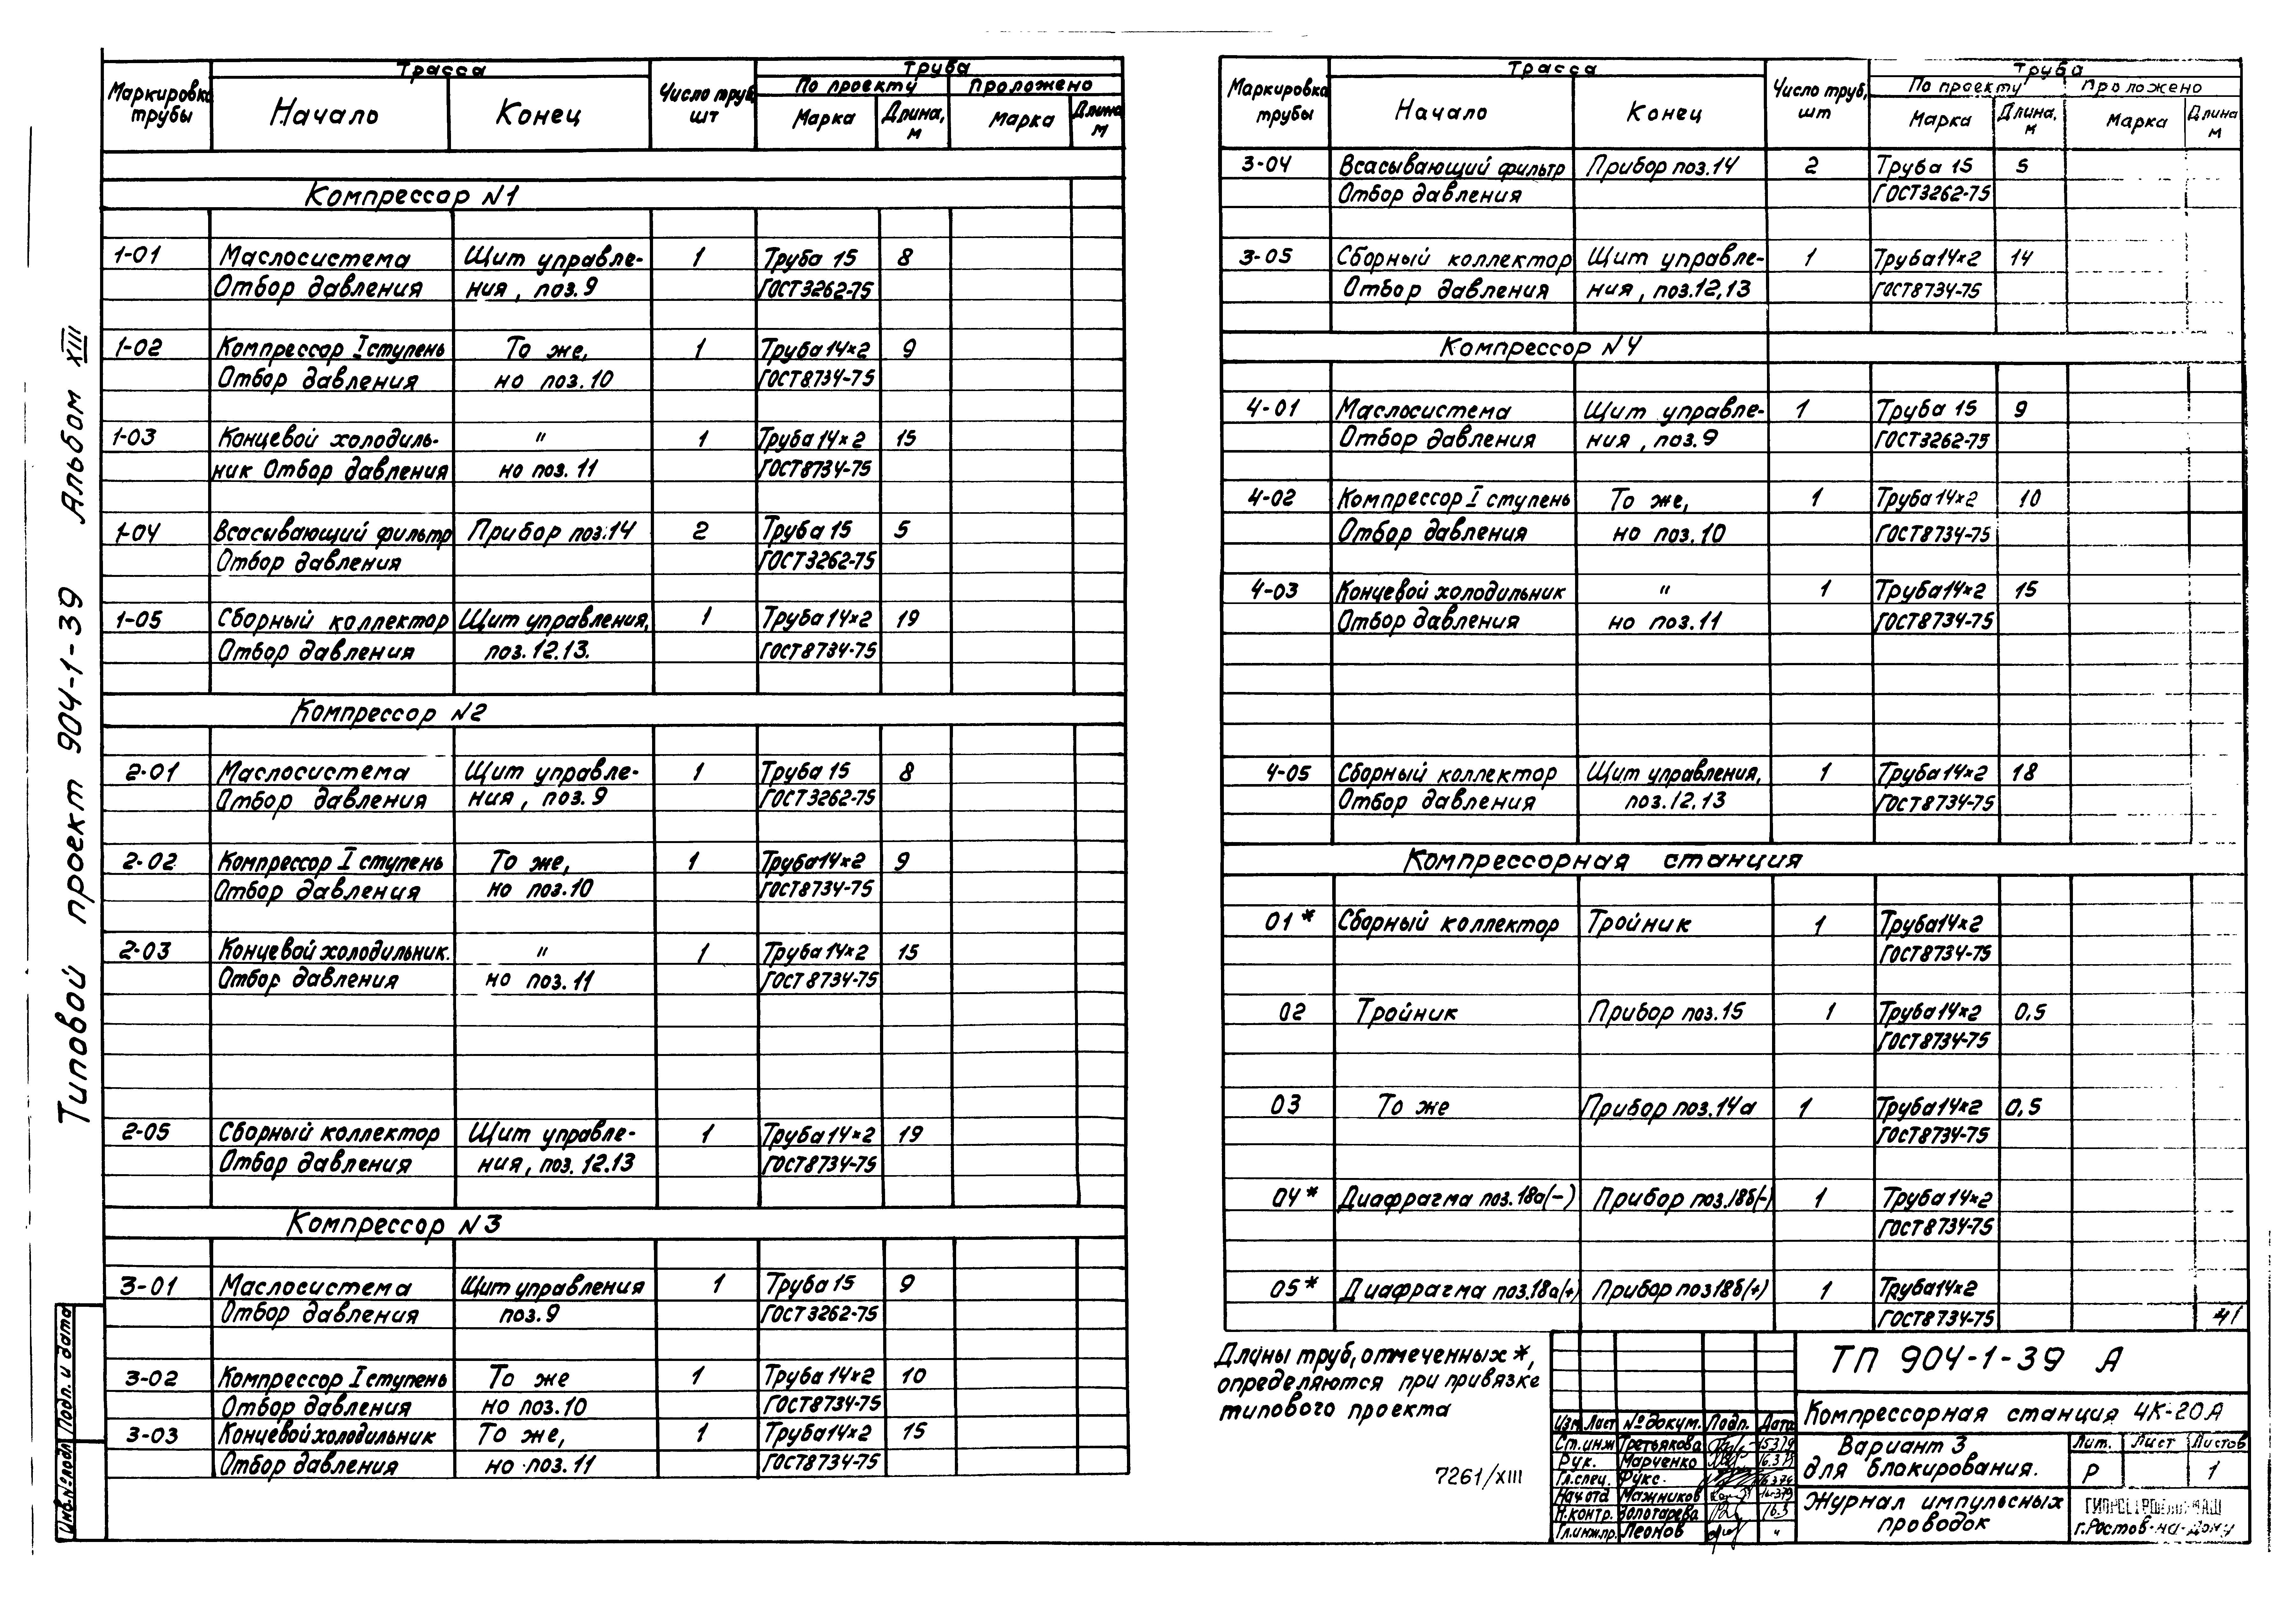 Типовой проект 904-1-39 Альбом XIII
Маркировка трубы Трасса Число труб, шт Труба
Начало Конец По проекту Проложено
Марка Длина, м Марка Длина м
Компрессор N1
1-01 Маслосистема Щит управле- 1 Труба 15 8
Отбор давления ния, поз. 9 ГОСТ3262-75
1-02 Компрессор I ступень То же, 1 Труба 14×2 9
Отбор давления но поз. 10 ГОСТ8734-75
1-03 Концевой холодиль- " 1 Труба 14×2 15
ник Отбор давления но поз. 11 ГОСТ8734-75
1-04 Всасывающий фильтр Прибор поз.14 2 Труба 15 5
Отбор давления ГОСТ3262-75
1-05 Сборный коллектор Щит управления, 1 Труба 14×2 19
Отбор давления поз. 12.13. ГОСТ8734-75
Компрессор N2
2-01 Маслосистема Щит управле- 1 Труба 15 8
Отбор давления ния, поз. 9 ГОСТ3262-75
2-02 Компрессор I ступень То же, 1 Труба14×2 9
Отбор давления но поз.10 ГОСТ8734-75
2-03 Концевой холодильник. " 1 Труба 14×2 15
Отбор давления но поз. 11 ГОСТ8734-75
2-05 Сборный коллектор Щит управле- 1 Труба 14×2 19
Отбор давления ния, поз. 12.13 ГОСТ8734-75
Компрессор N3
3-01 Маслосистема Щит управления 1 Труба 15 9
Отбор давления поз.9 ГОСТ3262-75
3-02 Компрессор I ступень То же 1 Труба 14×2 10
Отбор давления но поз.10 ГОСТ8734-75
3-03 Концевой холодильник То же, 1 Труба14×2 15
Отбор давления но поз. 11 ГОСТ8734-75
Маркировка трубы Трасса Число труб, шт Труба
Начало Конец По проекту Проложено
Марка Длина, м Марка Длина м
3-04 Всасывающий фильтр Прибор поз.14 2 Труба 15 5
Отбор давления ГОСТ3262-75
3-05 Сборный коллектор Щит управле- 1 Труба14×2 14
Отбор давления ния, поз.12,13 ГОСТ8734-75
Компрессор N4
4-01 Маслосистема Щит управле- 1 Труба 15 9
Отбор давления ния, поз.9 ГОСТ3262-75
4-02 Компрессор I ступень То же, 1 Труба 14×2 10
Отбор давления но поз.10 ГОСТ8734-75
4-03 Концевой холодильник " 1 Труба14×2 15
Отбор давления но поз.11 ГОСТ8734-75
4-05 Сборный коллектор Щит управления, 1 Труба 14×2 18
Отбор давления поз.12.13 ГОСТ8734-75
Компрессорная станция
01* Сборный коллектор Тройник 1 Труба14×2
ГОСТ8734-75
02 Тройник Прибор поз.15 1 Труба14×2 0,5
ГОСТ8734-75
03 То же Прибор поз.14а 1 Труба14×2 0,5
ГОСТ8734-75
04* Диафрагма поз.18а(-) Прибор поз.18б(-) 1 Труба 14×2
ГОСТ8734-75
05* Диафрагма поз.18а(+) Прибор поз18б(+) 1 Труба14×2
ГОСТ8734-75 41
Длины труб, отмеченных *,
определяются при привязке
типового проекта
7261/XIII
ТП 904-1-39 А
Компрессорная станция 4К-20А
Изм Лист № докум. Подп. Дата
Ст.инж Третьякова
Рук. Марченко
Гл.спец. Фукс
Нач отд Мажников
Н.контр. Золотарева 16.3
Гл.инж.пр. Леонов "
Вариант 3
для блокирования.
Лит. Лист Листов
Р 1
Журнал импульсных
проводок
г.Ростов-на-Дону
Подп. и дата
Инв.№ подл